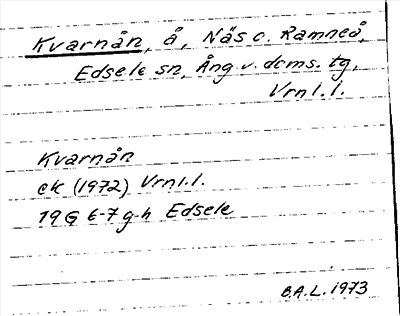 Kvarnån, å, Näs o. Ramneå,
Edsele sn, Ång. v. doms. tg,
Vrnl.l.
Kvarnån
ek (1972) Vrnl.l.
19G 6-7 g-h Edsele
B.A.L. 1973